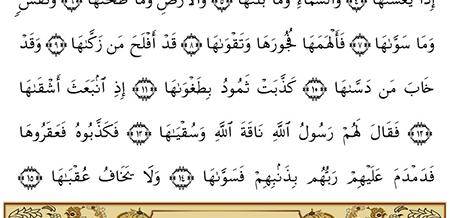 إِذَا يَغْشَىٰهَا ﴿٤﴾ وَٱلسَّمَآءِ وَمَا بَنَىٰهَا ﴿٥﴾ وَٱلْأَرْضِ وَمَا طَحَىٰهَا ﴿٦﴾ وَنَفْسٍ
وَمَا سَوَّىٰهَا ﴿٧﴾ فَأَلْهَمَهَا فُجُورَهَا وَتَقْوَىٰهَا ﴿٨﴾ قَدْ أَفْلَحَ مَن زَكَّىٰهَا ﴿٩﴾ وَقَدْ
خَابَ مَن دَسَّىٰهَا ﴿١٠﴾ كَذَّبَتْ ثَمُودُ بِطَغْوَىٰهَآ ﴿١١﴾ إِذِ ٱنۢبَعَثَ أَشْقَىٰهَا
﴿١٢﴾ فَقَالَ لَهُمْ رَسُولُ ٱللَّهِ نَاقَةَ ٱللَّهِ وَسُقْيَـٰهَا ﴿١٣﴾ فَكَذَّبُوهُ فَعَقَرُوهَا
فَدَمْدَمَ عَلَيْهِمْ رَبُّهُم بِذَنۢبِهِمْ فَسَوَّىٰهَا ﴿١٤﴾ وَلَا يَخَافُ عُقْبَـٰهَا ﴿١٥﴾